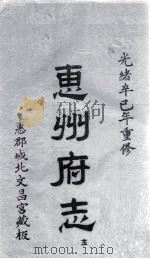 光緒辛巳年重修
惠州府志
惠郡城北文昌宮藏板
www.mtoou.info